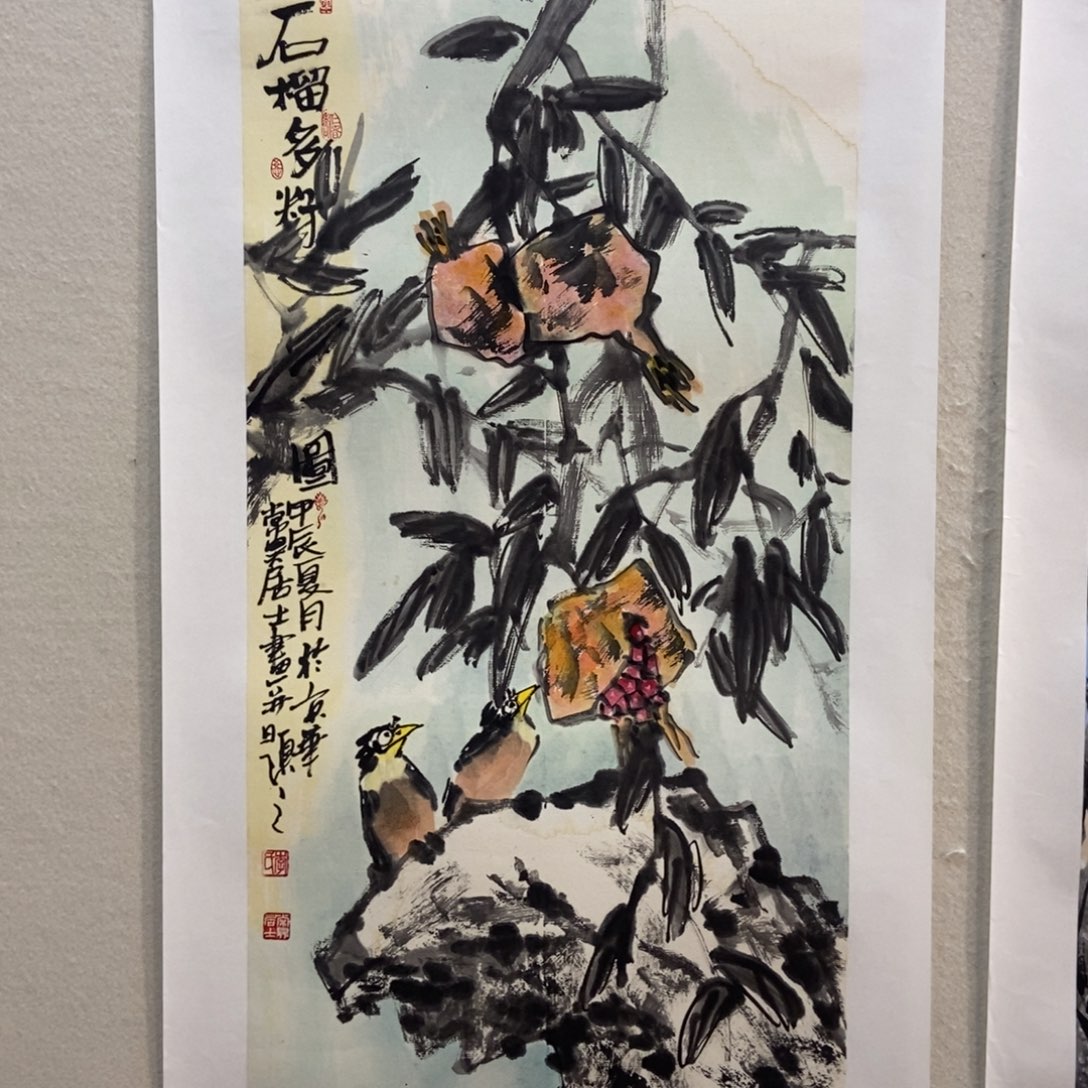 石榴多籽
圖
甲辰夏月於京華
常笑居士畫并題